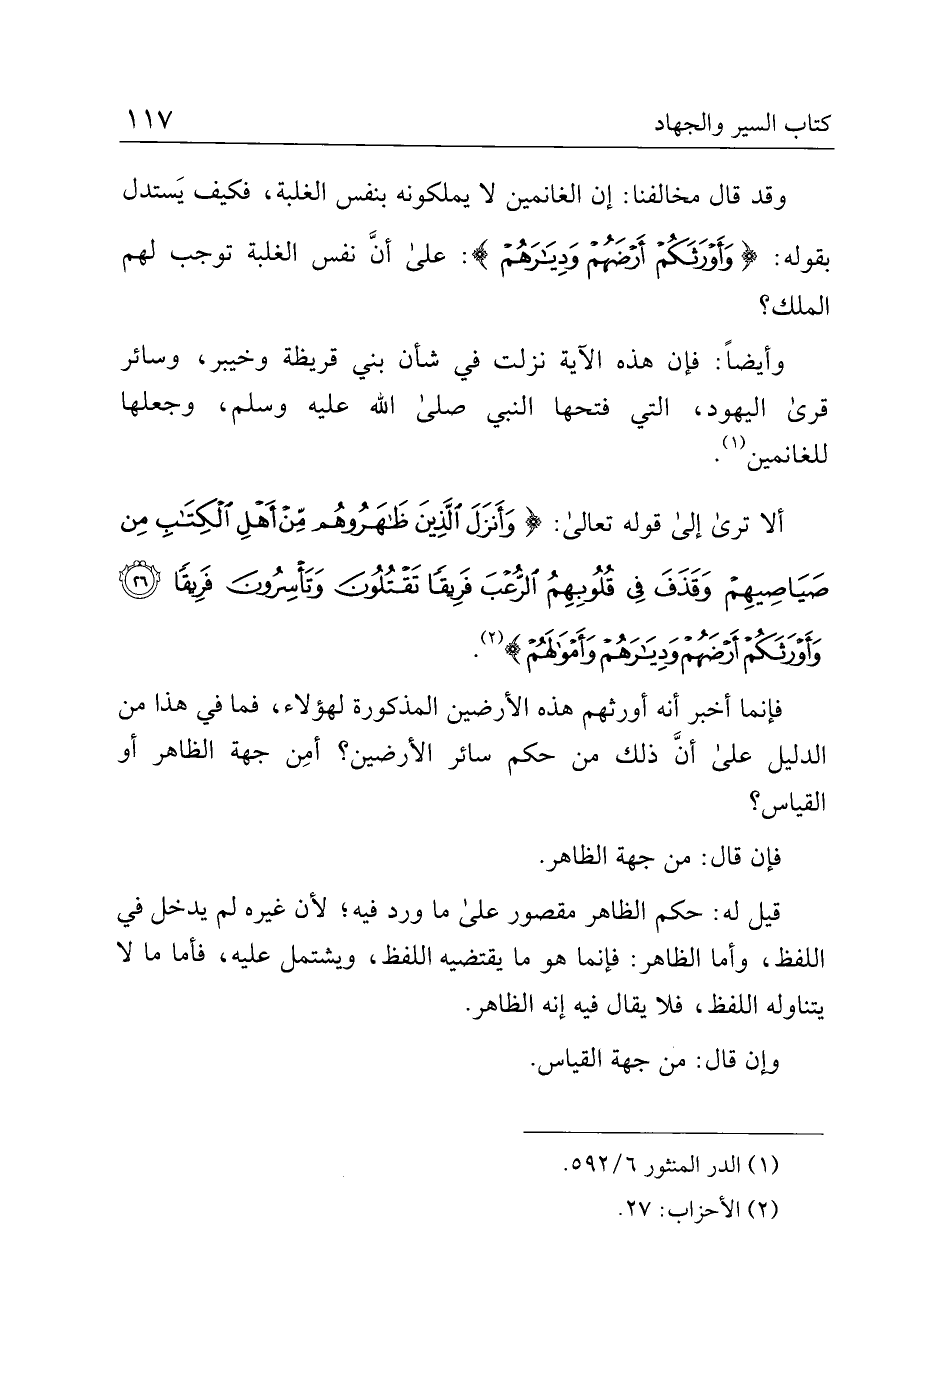 كتاب السير والجهاد ١١٧
وقد قال مخالفنا: إن الغانمين لا يملكونه بنفس الغلبة، فكيف يَستدل
بقوله: ﴿وَأَوْرَثَكُمْ أَرْضَهُمْ وَدِيَٰرَهُمْ﴾: علىٰ أنَّ نفس الغلبة توجب لهم
الملك؟
وأيضاً: فإن هذه الآية نزلت في شأن بني قريظة وخيبر، وسائر
قرىٰ اليهود، التي فتحها النبي صلىٰ الله عليه وسلم، وجعلها
للغانمين(١).
ألا ترىٰ إلىٰ قوله تعالىٰ: ﴿وَأَنزَلَ ٱلَّذِينَ ظَٰهَرُوهُم مِّنْ أَهْلِ ٱلْكِتَٰبِ مِن
صَيَاصِيهِمْ وَقَذَفَ فِى قُلُوبِهِمُ ٱلرُّعْبَ فَرِيقًا تَقْتُلُونَ وَتَأْسِرُونَ فَرِيقًا ۝٢٦
وَأَوْرَثَكُمْ أَرْضَهُمْ وَدِيَٰرَهُمْ وَأَمْوَٰلَهُمْ﴾(٢).
فإنما أخبر أنه أورثهم هذه الأرضين المذكورة لهؤلاء، فما في هذا من
الدليل علىٰ أنَّ ذلك من حكم سائر الأرضين؟ أمِن جهة الظاهر أو
القياس؟
فإن قال: من جهة الظاهر.
قيل له: حكم الظاهر مقصور علىٰ ما ورد فيه؛ لأن غيره لم يدخل في
اللفظ، وأما الظاهر: فإنما هو ما يقتضيه اللفظ، ويشتمل عليه، فأما ما لا
يتناوله اللفظ، فلا يقال فيه إنه الظاهر.
وإن قال: من جهة القياس.
(١) الدر المنثور ٥٩٢/٦.
(٢) الأحزاب: ٢٧.